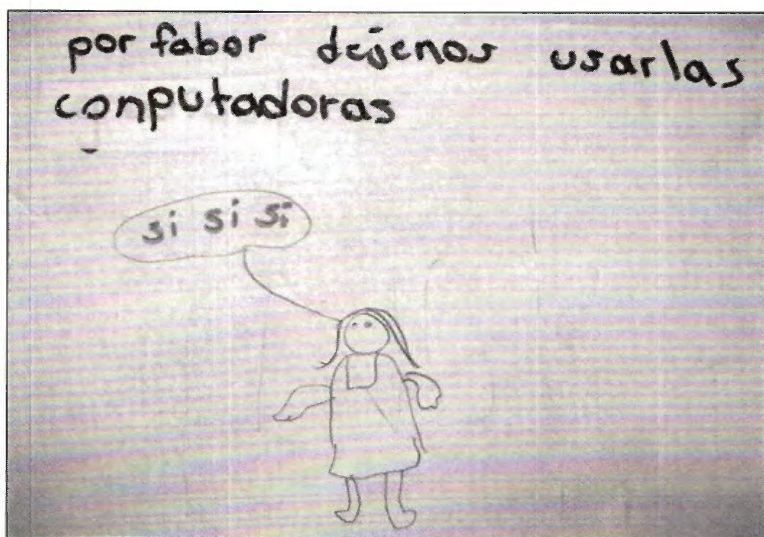 por fabor dejenos usar las
conputadoras
si si si